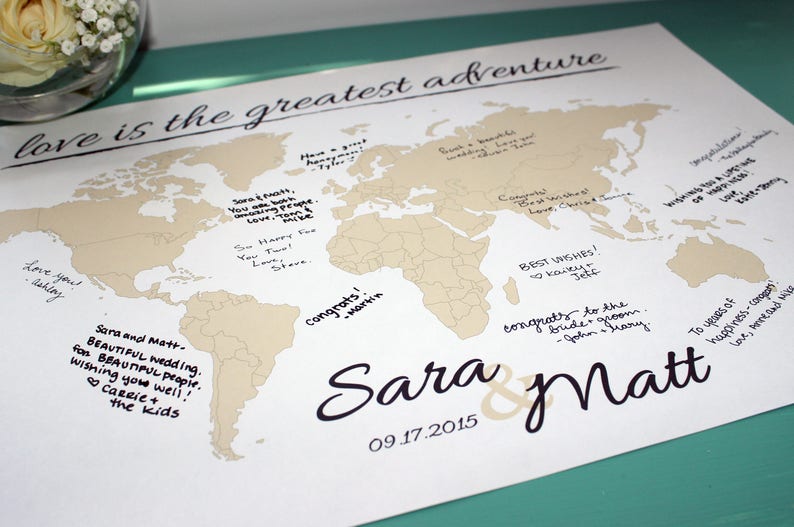 love is the greatest adventure
Have a great
honeymoon!
-Tyler
Such a beautiful
wedding! Love you!
- Cousin John
Congratulations!
WISHING YOU A LIFETIME
OF HAPPINESS!
Love,
Katie + Jenny
Sara & Matt,
You are both
amazing people.
Love, Tom &
Mike
Congrats!
Best Wishes!
Love, Chris &
So Happy For
You Two!
Love,
Steve.
Love you!
-Ashley
BEST WISHES!
♡ Kailey +
Jeff
congrats!
-Martin
congrats to the
bride + groom.
-John + Mary
To years of
happiness - congrats!
Love, Anne and Mike
Sara and Matt-
BEAUTIFUL wedding.
for BEAUTIFUL people.
wishing you well!
♡ CARRIE +
the Kids
Sara & Matt
09.17.2015